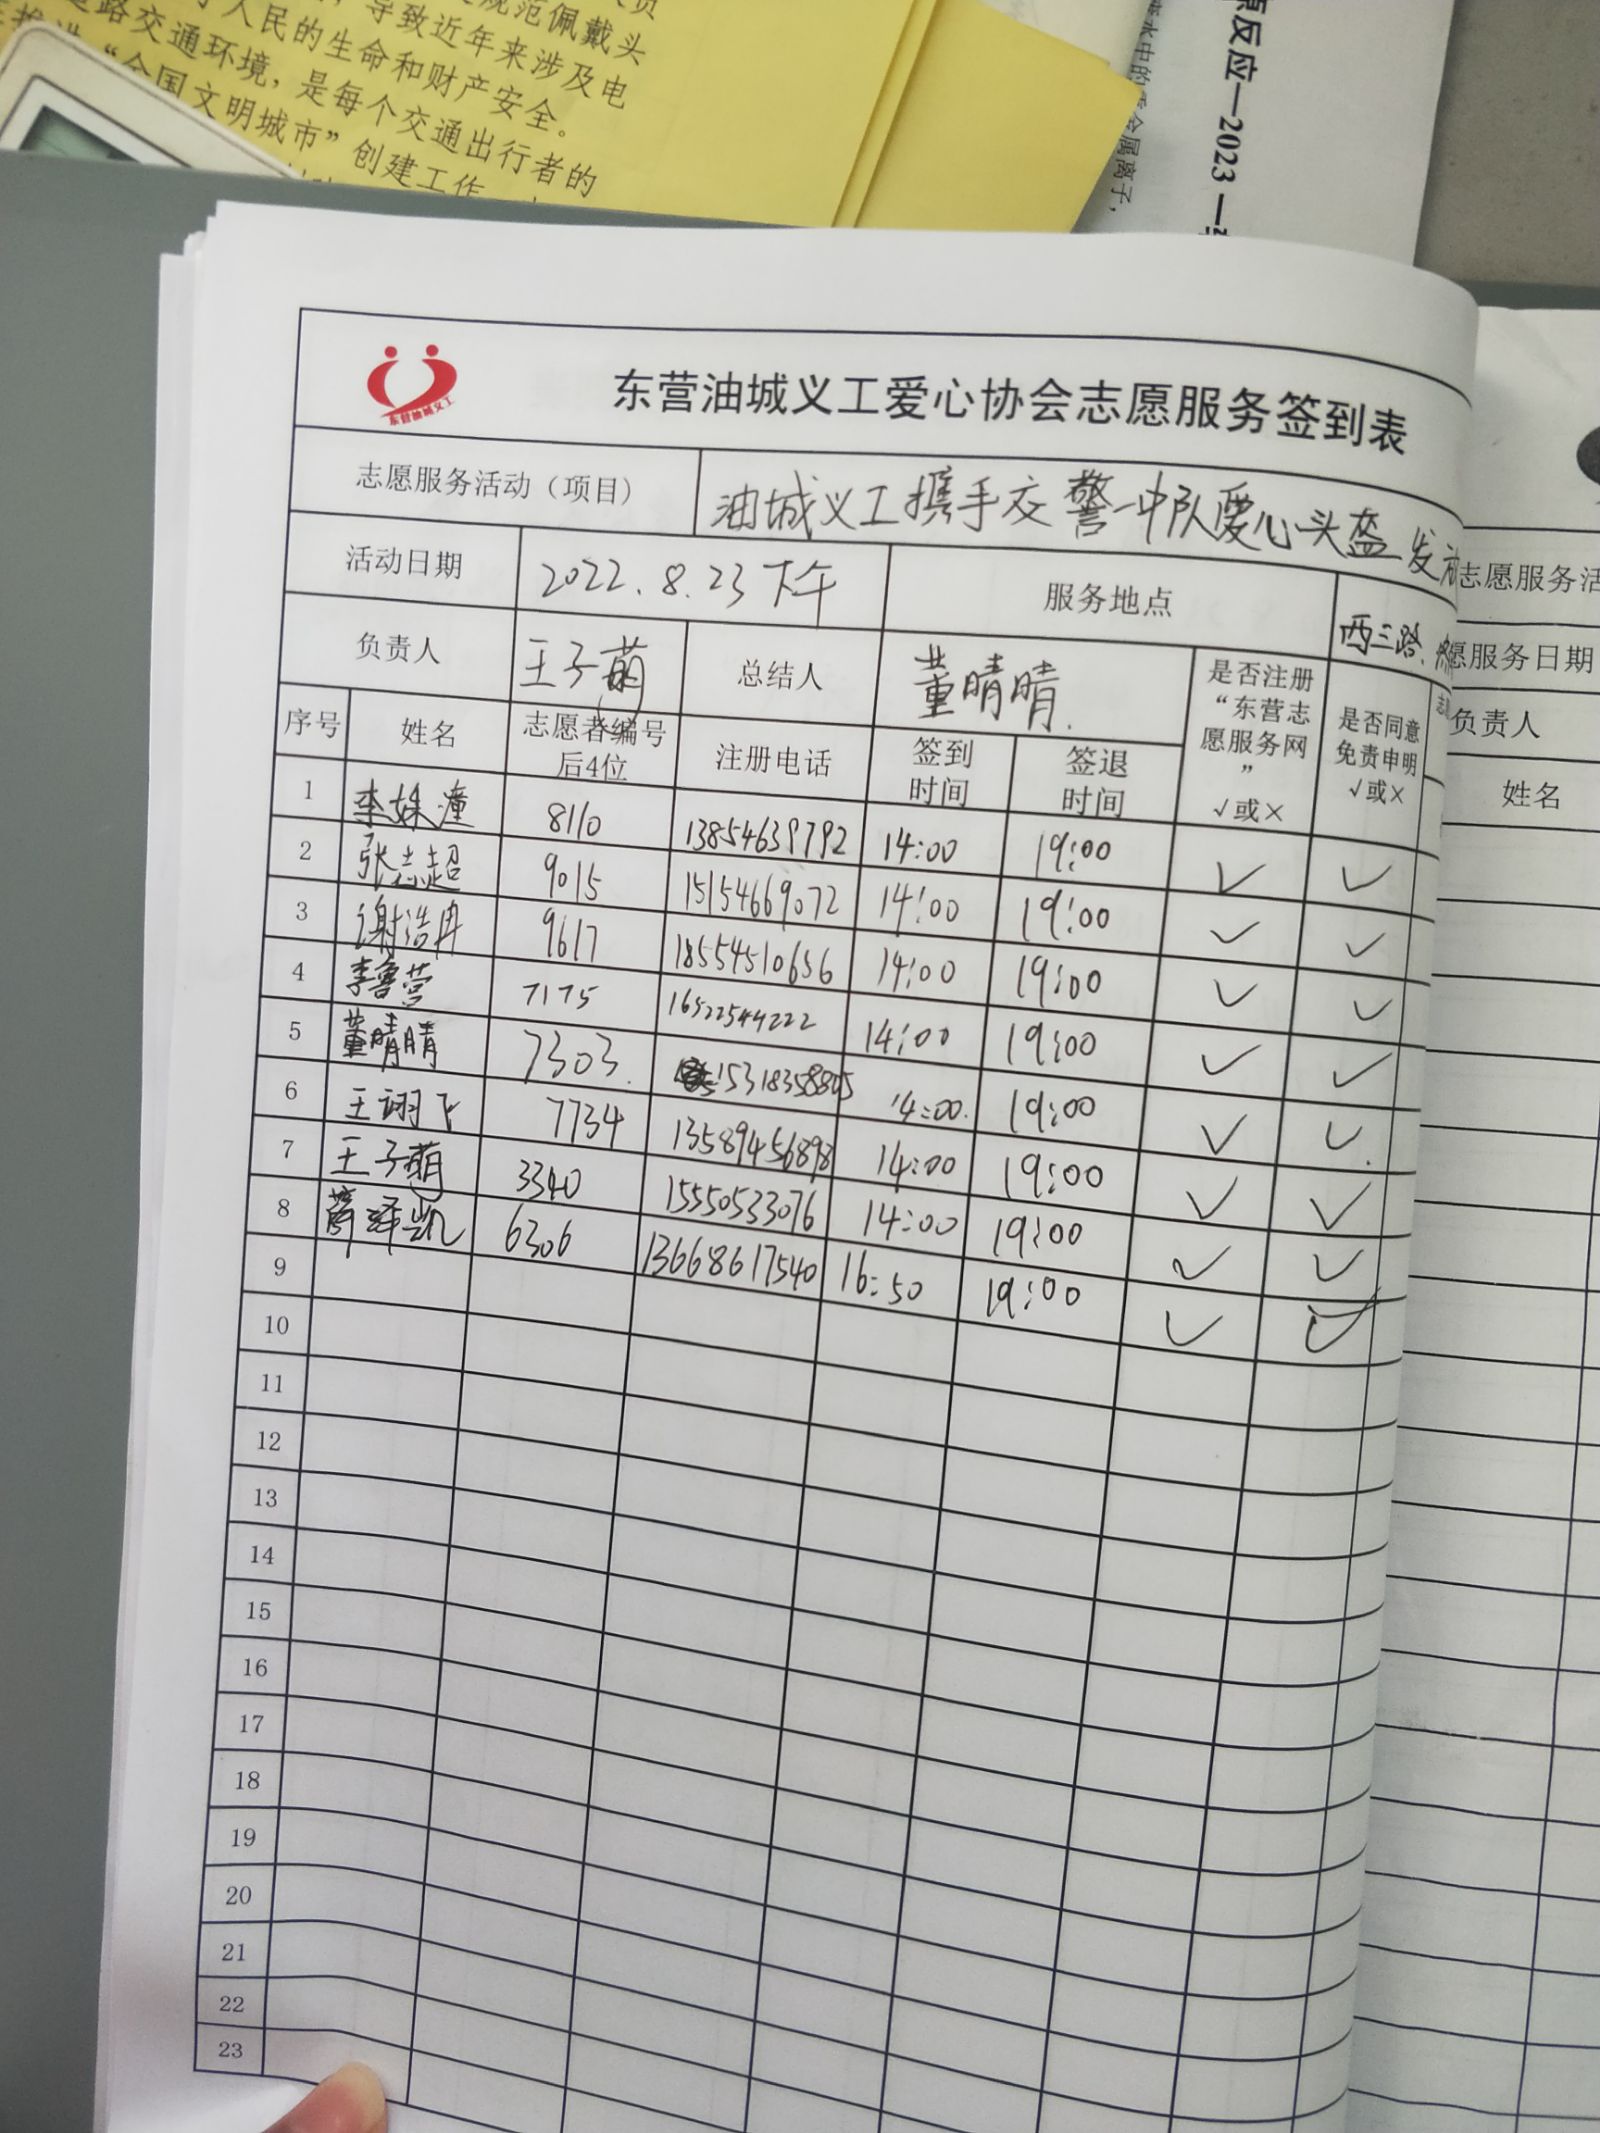 规范佩戴头
导致近年来涉及电
人民的生命和财产安全。
路交通环境，是每个交通出行者的
“全国文明城市”创建工作
原反应—2023
金属离子，
东营油城义工
东营油城义工爱心协会志愿服务签到表
志愿服务活动（项目） 油城义工携手交警一中队爱心头盔发动
活动日期 2022.8.23下午 服务地点 西三路
负责人 王子萌 总结人 董晴晴.
序号 姓名 志愿者编号后4位 注册电话 签到时间 签退时间 是否注册“东营志愿服务网” √或× 是否同意免责申明 √或×
1 李姝潼 8110 13854639792 14:00 19:00 √ √
2 张志超 9015 15154669072 14:00 19:00 √ √
3 谢浩冉 9617 18554510656 14:00 19:00 √ √
4 李鲁营 7175 16522544222 14:00 19:00 √ √
5 董晴晴 7303. 15318358805 14:00. 19:00 √ √.
6 王诩飞 7734 13589456898 14:00 19:00 √ √
7 王子萌 3340 15550533076 14:00 19:00 √ √
8 薛泽凯 6306 13668617540 16:50 19:00 √ √
9
10
11
12
13
14
15
16
17
18
19
20
21
22
23
志愿服务活
愿服务日期
负责人
姓名